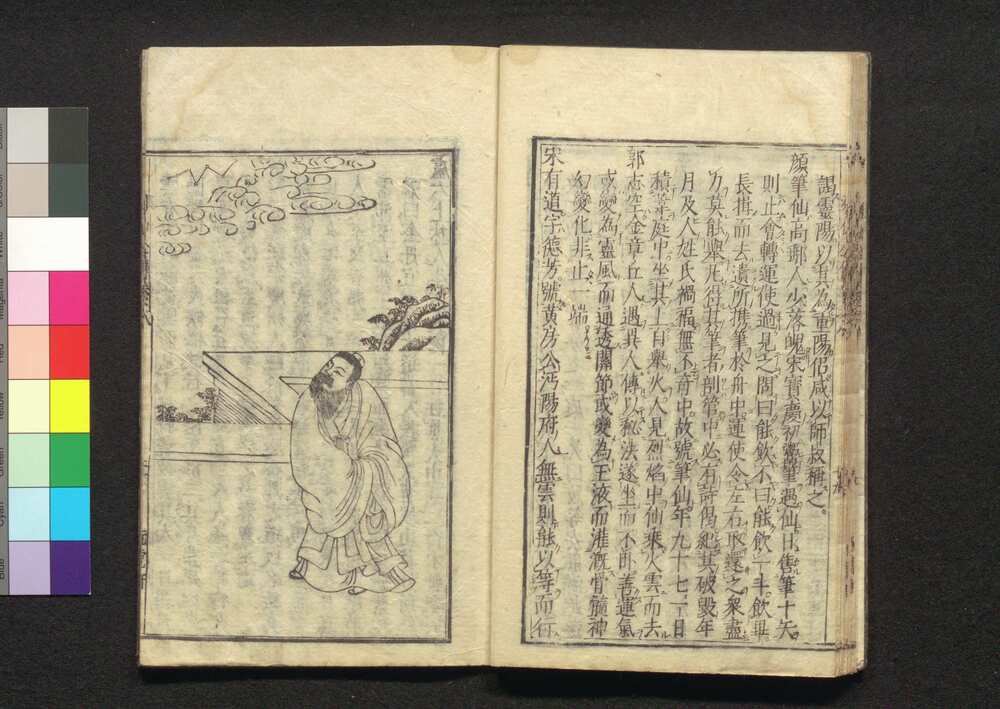 謁靈陽以其為重陽侶咸以師叔稱之
顔筆仙高郵人少落魄宋寳慶初鬻筆遇仙日售筆十矢
則止會轉運使過見之問曰能飲不曰能飲一斗飲畢
長揖而去遺所携筆於舟中運使令左右取還之衆盡
力莫能舉凢得其筆者剖筆中必有詩偈紀其破毁年
月及人姓氏禍福無不竒中故號筆仙年九十七一日
積葦庭中坐其上自舉火人見烈焰中仙乗火雲而去
郭志空金章丘人遇異人傳以秘法遂坐而不卧善運氣
或變為靈風而通透關節或變為玉液而灌溉骨髓神
幻變化非止一端
宋有道字德芳號黄房公沔陽府人無雲則能以等而行